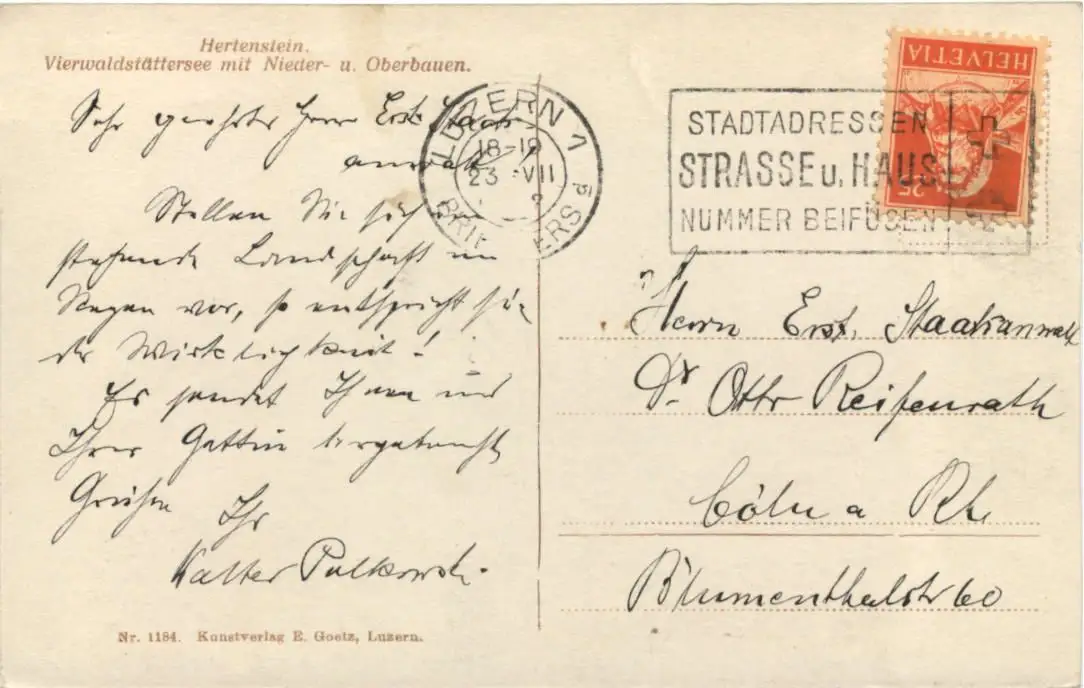 Hertenstein.
Vierwaldstättersee mit Nieder- u. Oberbauen.
Sehr geehrter Herr Erst. Staats-
anwalt!
Stellen Sie sich
stehende Landschaft im
Regen vor, so entspricht sie
der Wirklichkeit!
Es sendet Ihnen und
Ihrer Gattin ergebenst
Grüßen Ihr
Walter
Nr. 1184. Kunstverlag E. Goetz, Luzern.
LUZERN 1
18-19
23 VII
STADTADRESSEN
STRASSE u. HAUS
NUMMER BEIFÜGEN
HELVETIA
25
Herrn Erst. Staatsanwalt
Dr. Otto Reifenrath
Cöln a Rh.
Blumenthalstr 60